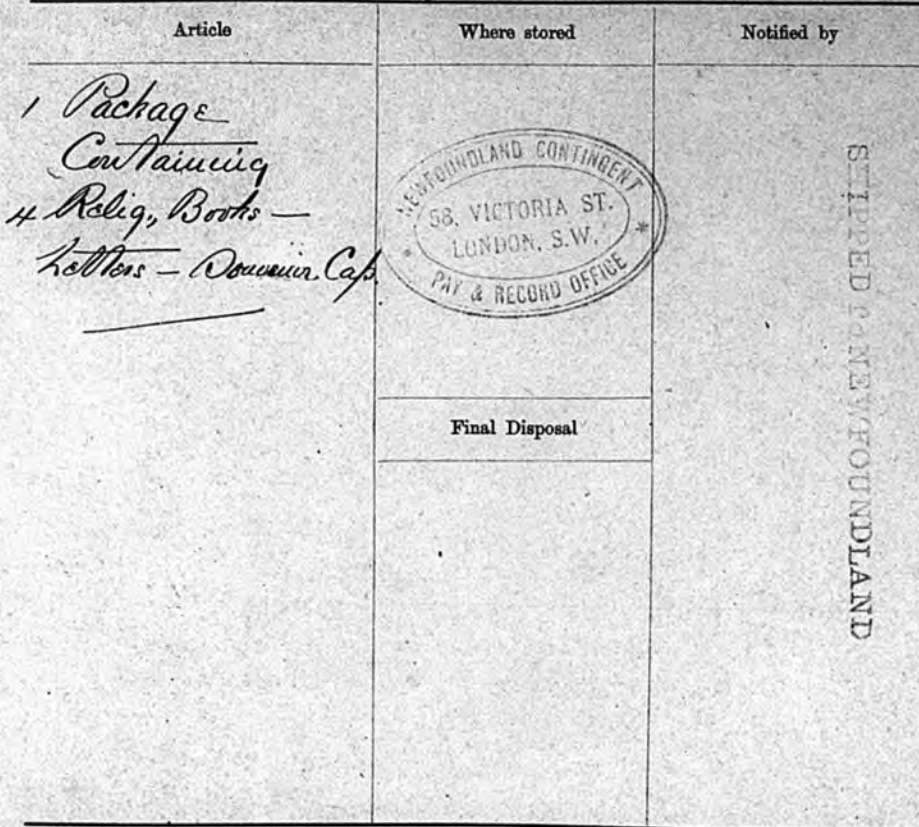 Article
Where stored
Notified by
1 Package
Containing
4 Relig., Books —
Letters — Souvenir Cap
NEWFOUNDLAND CONTINGENT
58, VICTORIA ST.
LONDON, S.W.
* PAY & RECORD OFFICE *
Final Disposal
SHIPPED to NEWFOUNDLAND